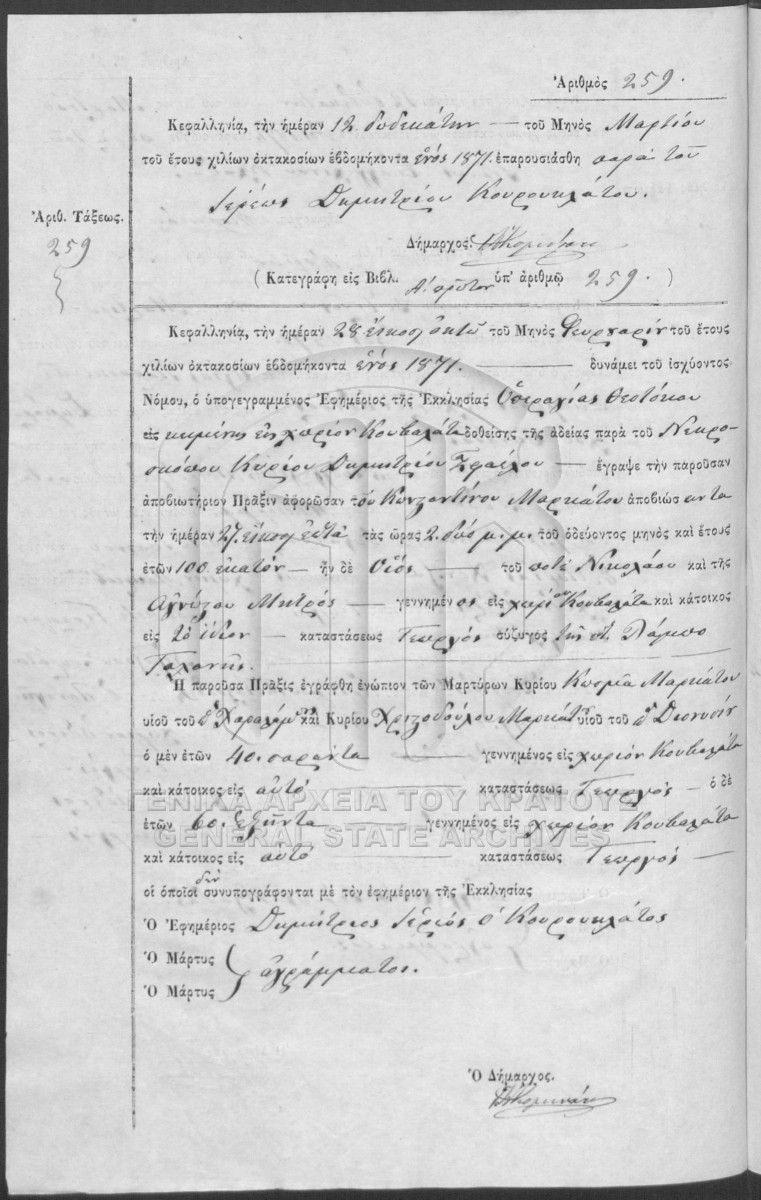 Ἀριθμὸς 259.
Κεφαλληνίᾳ, τὴν ἡμέραν 12. δωδεκάτην — τοῦ Μηνὸς Μαρτίου
τοῦ ἔτους χιλίων ὀκτακοσίων ἑβδομήκοντα ἑνός 1871. ἐπαρουσιάσθη παρὰ τοῦ
Ἱερέως Δημητρίου Κουρουκλάτου.
Ἀριθ. Τάξεως.
259
Δήμαρχος:
( Κατεγράφη εἰς Βιβλ. Α. πρῶτον ὑπ' ἀριθμῷ 259. )
Κεφαλληνίᾳ, τὴν ἡμέραν 28 εἴκοσι ὀκτώ τοῦ Μηνὸς Φευρουαρίου τοῦ ἔτους
χιλίων ὀκτακοσίων ἑβδομήκοντα ἑνός 1871. — δυνάμει τοῦ ἰσχύοντος
Νόμου, ὁ ὑπογεγραμμένος Ἐφημέριος τῆς Ἐκκλησίας Ὑπεραγίας Θεοτόκου
εἰς κειμένης εἰς χωρίον Κουβαλάτα δοθείσης τῆς ἀδείας παρὰ τοῦ Νεκρο-
σκόπου Κυρίου Δημητρίου — ἔγραψε τὴν παροῦσαν
ἀποβιωτήριον Πρᾶξιν ἀφορῶσαν τὸν Κωνσταντίνου Μαρκάτου ἀποβιώσαντα
τὴν ἡμέραν 27. εἴκοσι ἑπτά τὰς ὥρας 2. δύο μ.μ. τοῦ ὁδεύοντος μηνὸς καὶ ἔτους
ἐτῶν 100. ἑκατόν — ἦν δὲ Υἱός — τοῦ ποτὲ Νικολάου καὶ τῆς
Ἀγνώστου Μητρός — γεννημένος εἰς χωρίον Κουβαλάτα καὶ κάτοικος
εἰς τὸ ἴδιον — καταστάσεως Γεωργός σύζυγος τῆς Λάμπο
Γαλανῆς.
Ἡ παροῦσα Πρᾶξις ἐγράφθη ἐνώπιον τῶν Μαρτύρων Κυρίου Κοσμᾶ Μαρκάτου
υἱοῦ τοῦ Χαραλάμ. καὶ Κυρίου Χριστοδούλου Μαρκάτ. υἱοῦ τοῦ Διονυσίου
ὁ μὲν ἐτῶν 40. σαράντα — γεννημένος εἰς χωρίον Κουβαλάτα
καὶ κάτοικος εἰς αὐτό — καταστάσεως Γεωργός — ὁ δὲ
ΓΕΝΙΚΑ ΑΡΧΕΙΑ ΤΟΥ ΚΡΑΤΟΥΣ
ἐτῶν 60. ἑξήντα — γεννημένος εἰς χωρίον Κουβαλάτα
GENERAL STATE ARCHIVES
καὶ κάτοικος εἰς αὐτό — καταστάσεως Γεωργός —
οἱ ὁποῖοι δὲν συνυπογράφονται μὲ τὸν ἐφημέριον τῆς Ἐκκλησίας
Ὁ Ἐφημέριος Δημήτριος Ἱερεύς ὁ Κουρουκλάτος
Ὁ Μάρτυς
ἀγράμματοι.
Ὁ Μάρτυς
Ὁ Δήμαρχος.